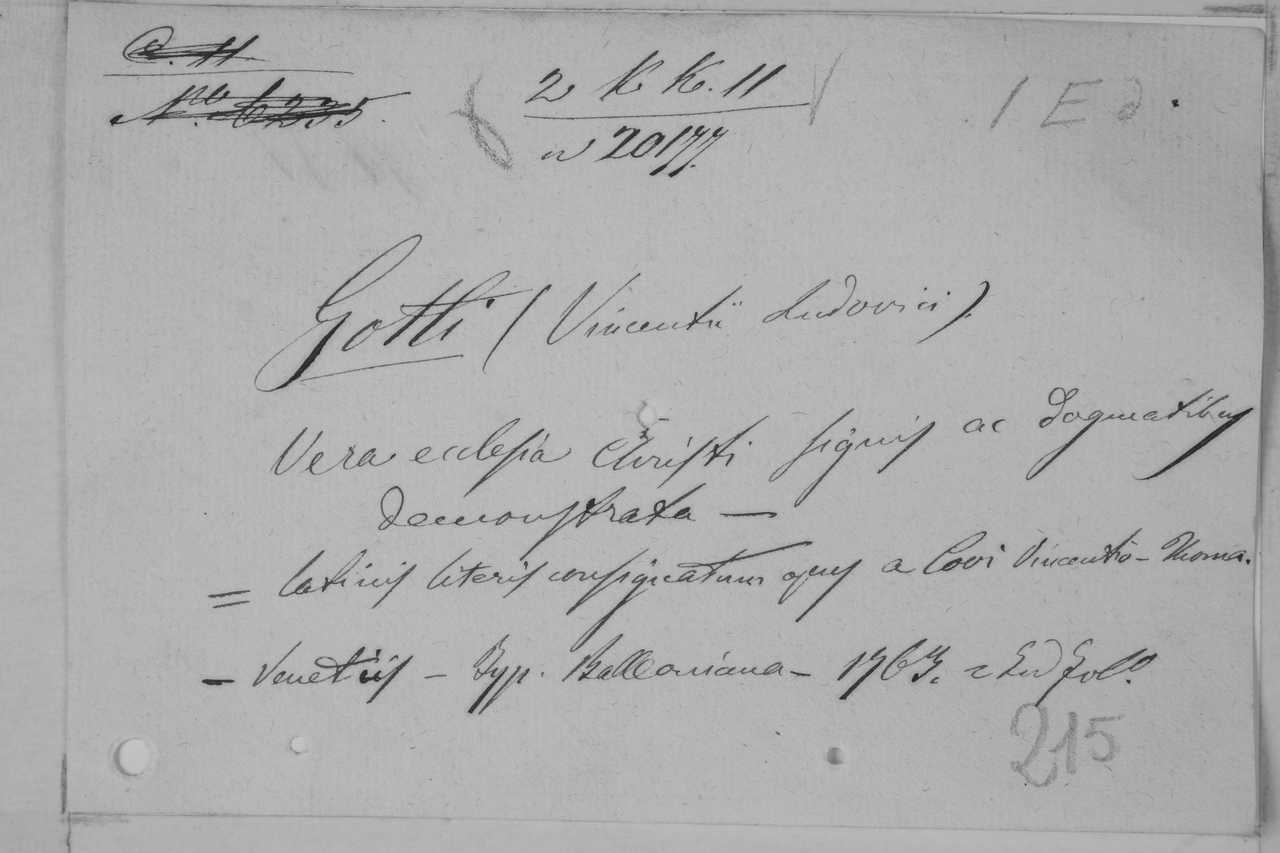 C. 11
Nro. 6235.
2 K K. 11
n 20177.
1 E d.
Gotti (Vincentii Ludovici).
Vera eclesia Christi signis ac dogmatibus
demonstrata —
= latinis literis consignatum opus a Covi Vincentio - Thoma.
- Venetiis - Typ. Balleoniana - 1763. 2 Ed fol.o
215